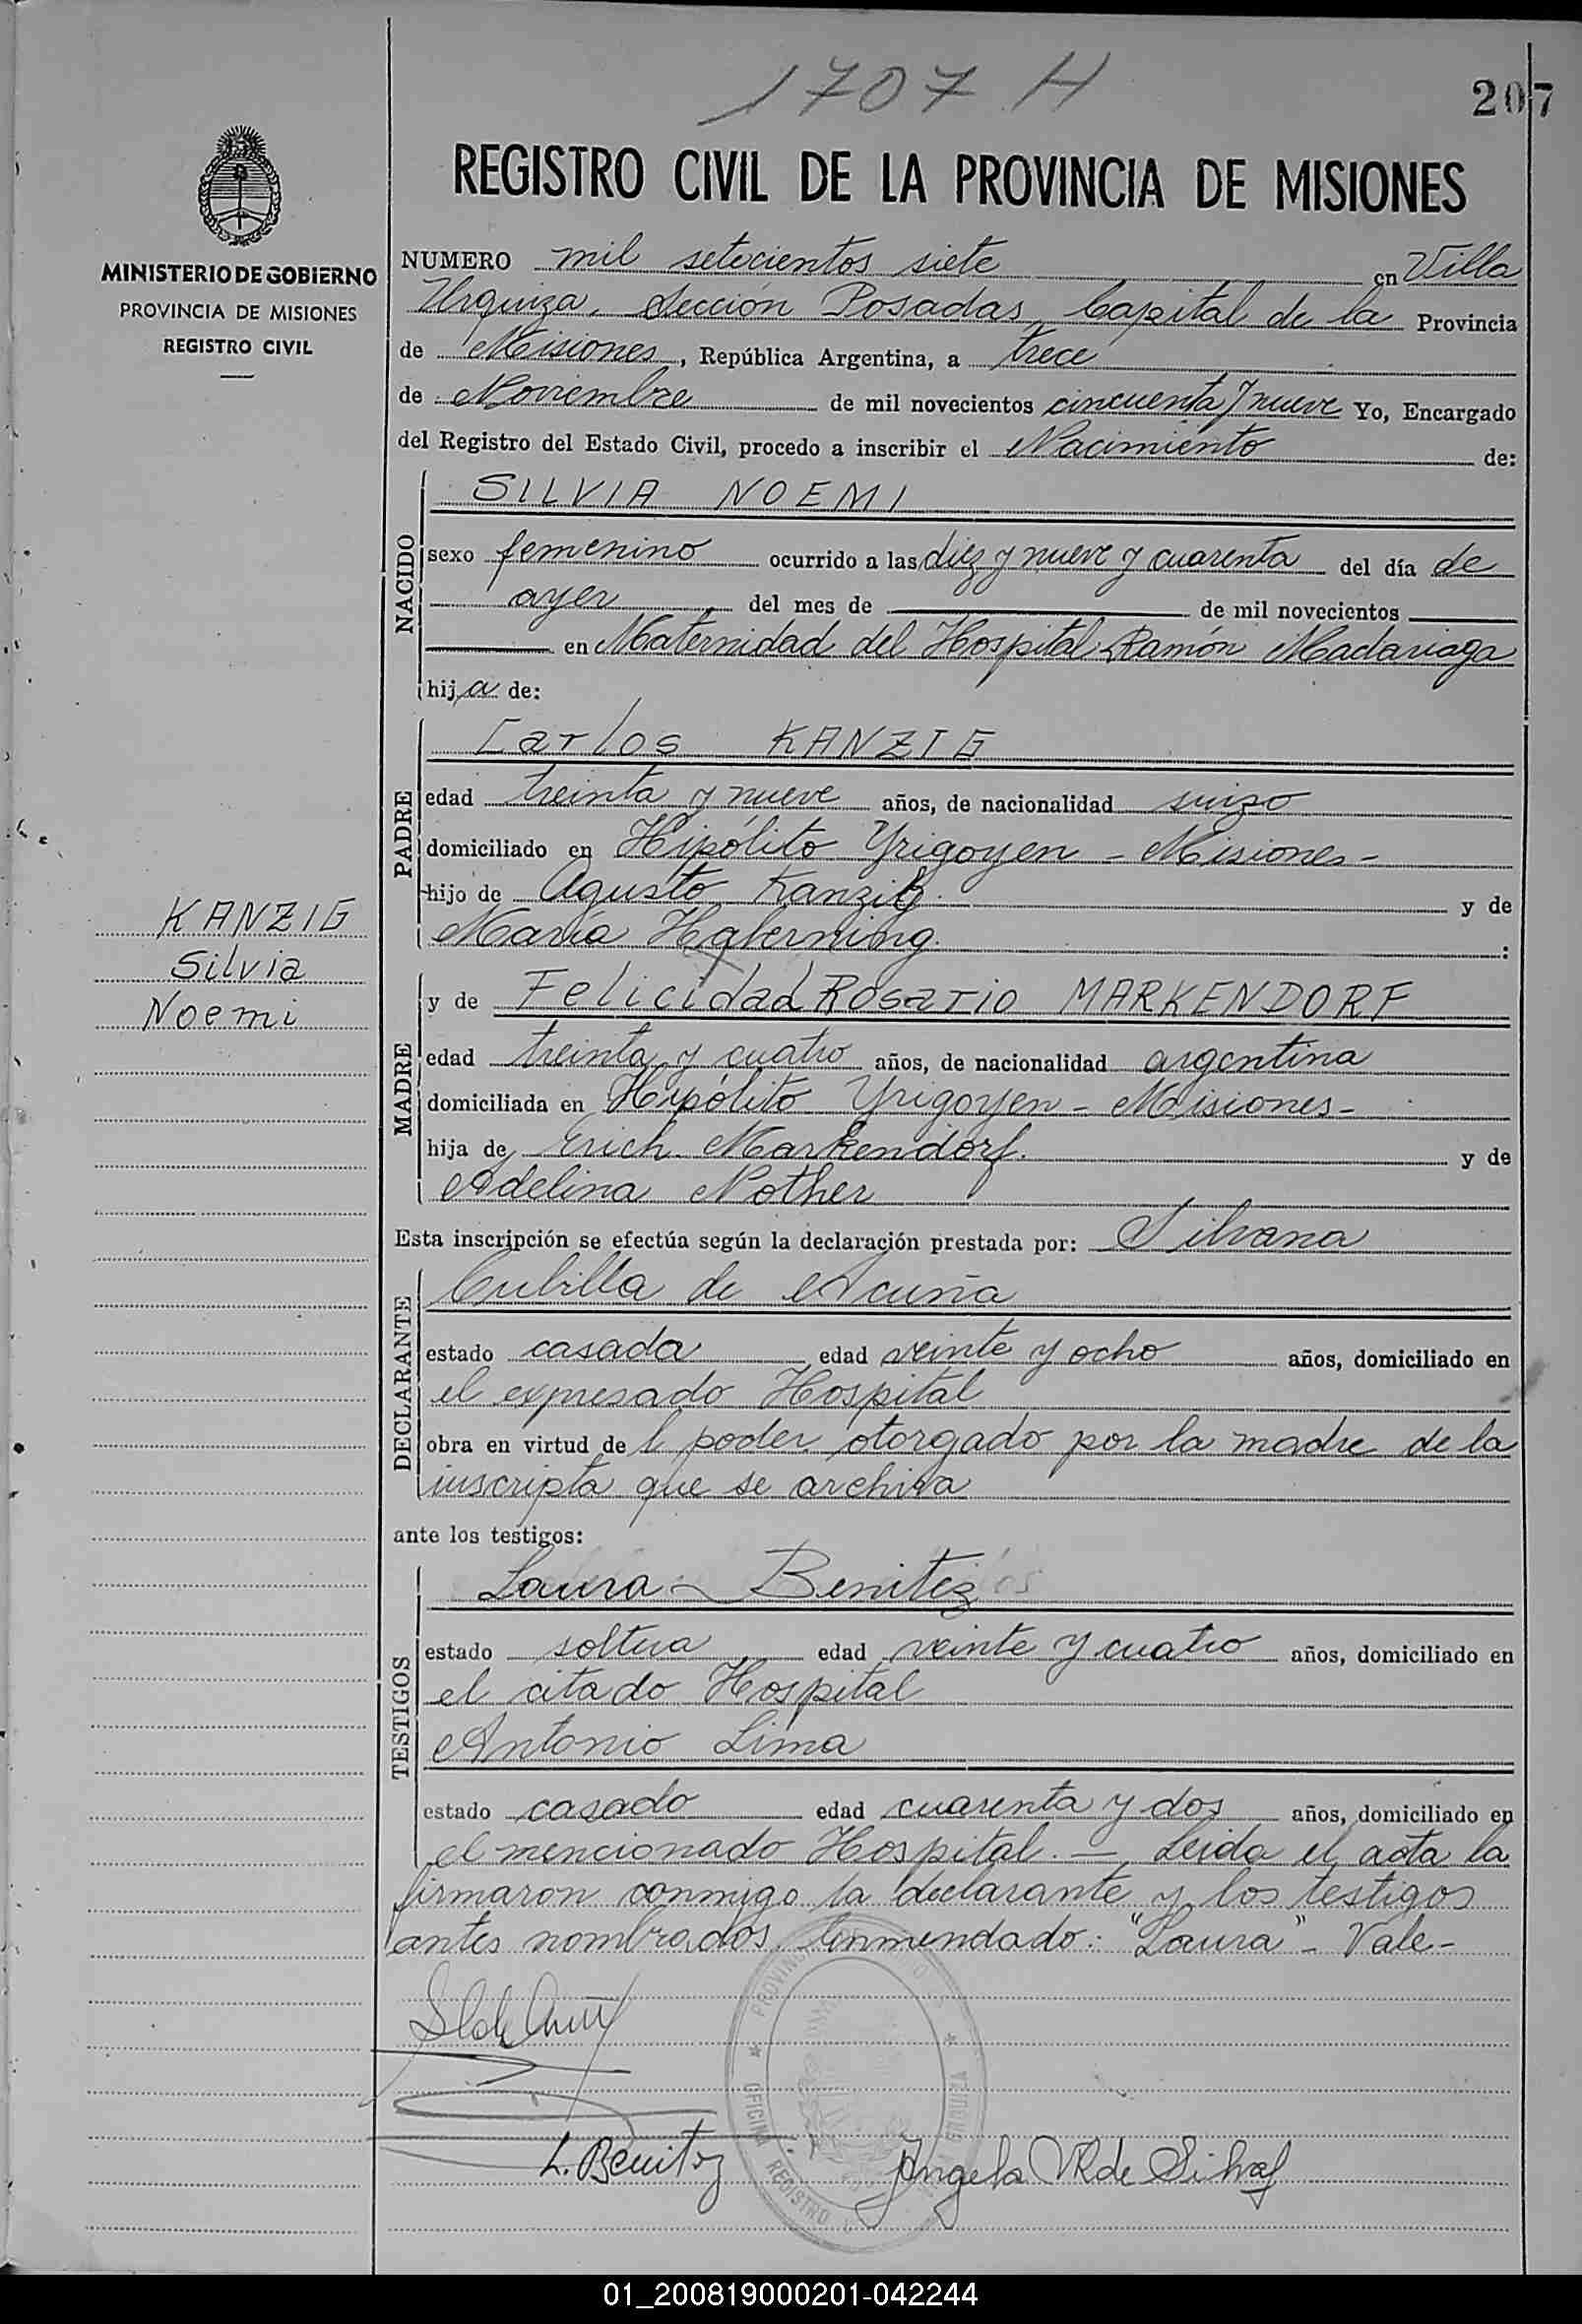 1707 H
207
REGISTRO CIVIL DE LA PROVINCIA DE MISIONES
MINISTERIO DE GOBIERNO
PROVINCIA DE MISIONES
REGISTRO CIVIL
NUMERO mil setecientos siete en Villa
Urquiza, Sección Posadas, Capital de la Provincia
de Misiones, República Argentina, a trece
de Noviembre de mil novecientos cincuenta y nueve Yo, Encargado
del Registro del Estado Civil, procedo a inscribir el Nacimiento de:
NACIDO
SILVIA NOEMI
sexo femenino ocurrido a las diez y nueve y cuarenta del día de
ayer, del mes de de mil novecientos
en Maternidad del Hospital Ramón Madariaga
hija de:
PADRE
Carlos KANZIG
edad treinta y nueve años, de nacionalidad suizo
domiciliado en Hipólito Yrigoyen - Misiones-
hijo de Agusto Kanzig. y de
María Haberning. :
KANZIG
Silvia
Noemi
MADRE
y de Felicidad Rosario MARKENDORF
edad treinta y cuatro años, de nacionalidad argentina
domiciliada en Hipólito Yrigoyen - Misiones-
hija de Erich Markendorf. y de
Adelina Nother
Esta inscripción se efectúa según la declaración prestada por: Silvana
DECLARANTE
Cubilla de Acuña
estado casada edad veinte y ocho años, domiciliado en
el expresado Hospital
obra en virtud de l poder otorgado por la madre de la
inscripta que se archiva
ante los testigos:
TESTIGOS
Laura Benitez
estado soltera edad veinte y cuatro años, domiciliado en
el citado Hospital
Antonio Lima
estado casado edad cuarenta y dos años, domiciliado en
el mencionado Hospital. - Leida el acta la
firmaron conmigo la declarante y los testigos
antes nombrados. Enmendado: "Laura" - Vale-
L. Benitez
Angela V R de Silva
OFICINA REGISTRO
01_200819000201-042244